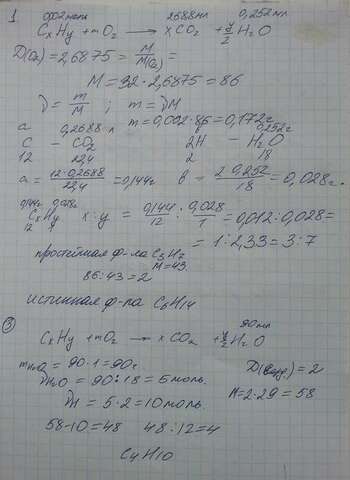 1 0,002 моль 268,8 мл 0,252 мл
CxHy + mO2 → xCO2 + y/2 H2O
D(O2) = 2,6875 = M/M(O2) =
M = 32 · 2,6875 = 86
ν = m/M ; m = νM
m = 0,002 · 86 = 0,172 г
a 0,2688 л 0,252 г
C – CO2 2H – H2O
12 22,4 2 18
a = 12·0,2688/22,4 = 0,144 г в = 2·0,252/18 = 0,028 г.
0,144 г 0,028 г
CxHy x:y = 0,144/12 : 0,028/1 = 0,012 : 0,028 =
12 1
= 1 : 2,33 = 3 : 7
простейшая ф-ла C3H7
M = 43
86 : 43 = 2
истинная ф-ла C6H14
3 90 мл
CxHy + mO2 → xCO2 + y/2 H2O
mH2O = 90 · 1 = 90 г. D(возд.) = 2
νH2O = 90 : 18 = 5 моль. M = 2 · 29 = 58
νH = 5 · 2 = 10 моль.
58 - 10 = 48 48 : 12 = 4
C4H10